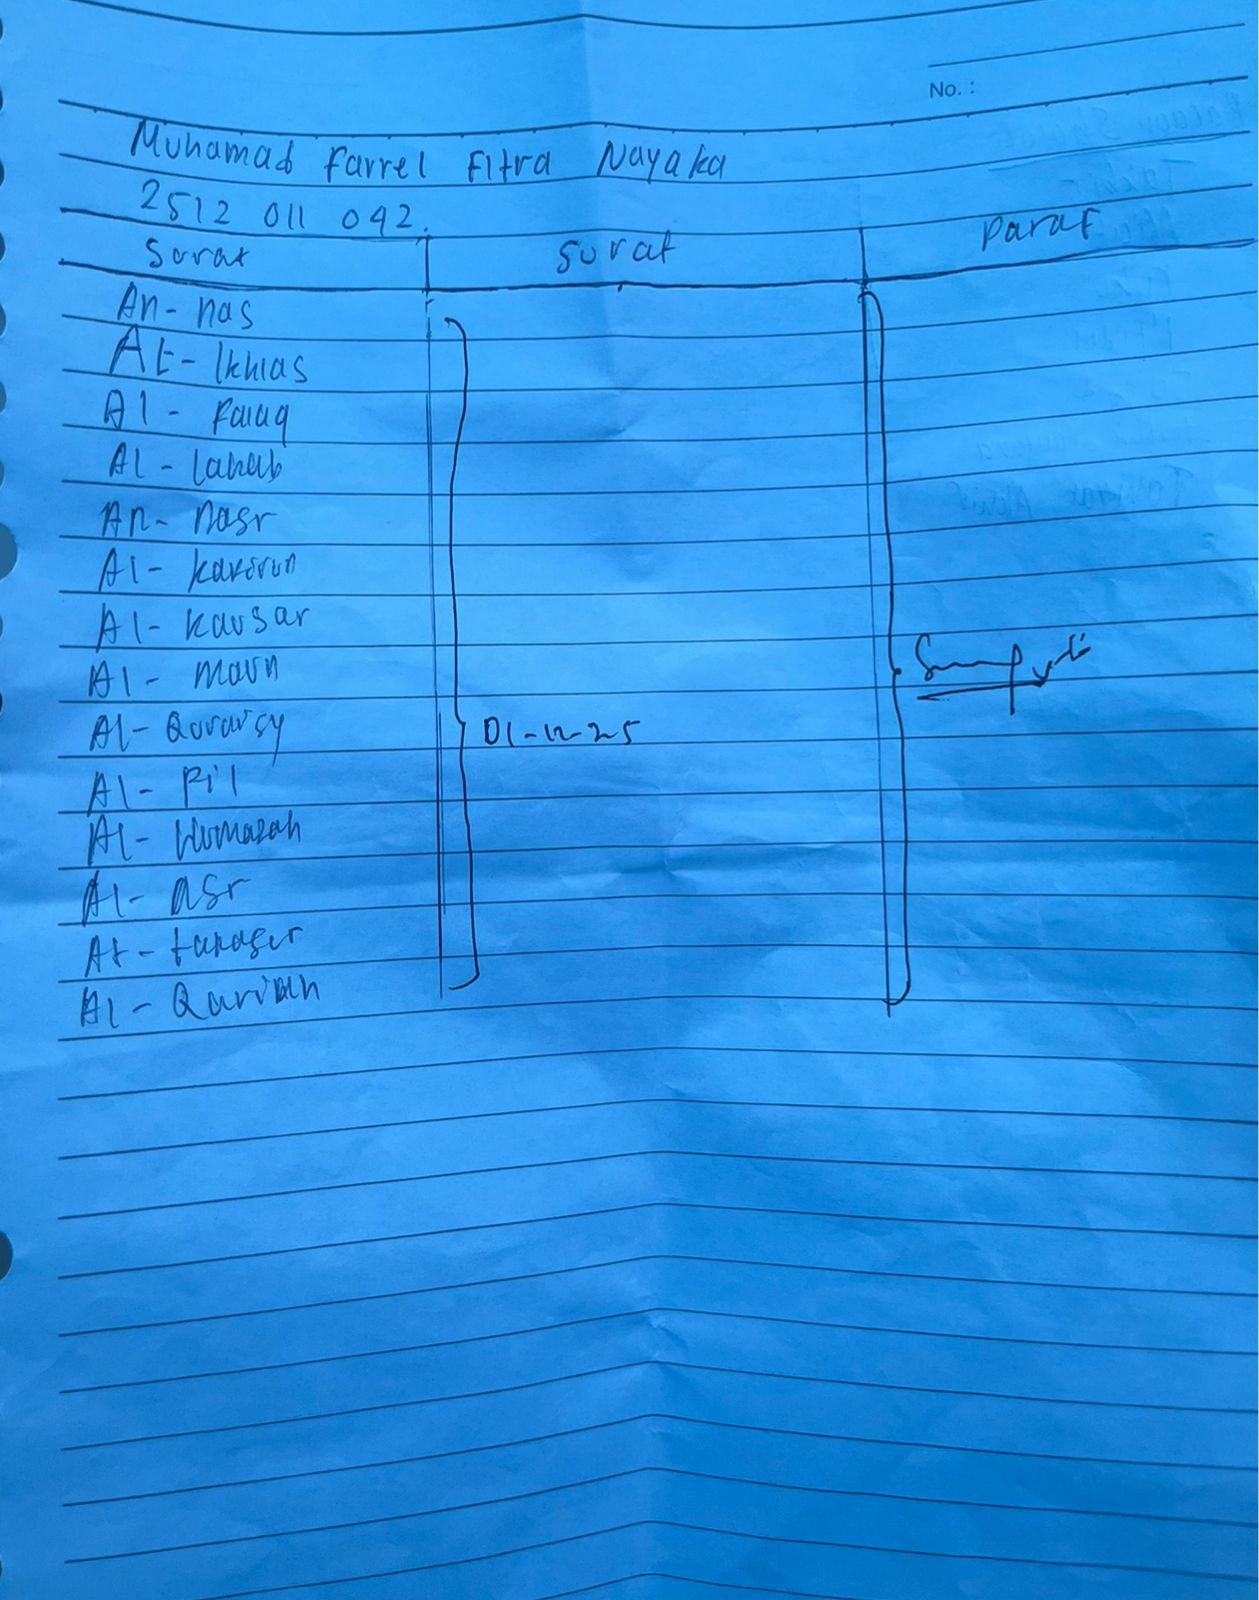 No. :
Muhamad Farrel Fitra Nayaka
2512 011 042.
Surat surat paraf
An- nas
At- Ikhlas
Al - Falaq
Al - lahab
An- nasr
Al - kafirun
Al - kausar
Al - maun
Al- Quraisy
01-12-25
Al- Fil
Al- Humazah
Al- asr
At- takasur
Al - Qariah